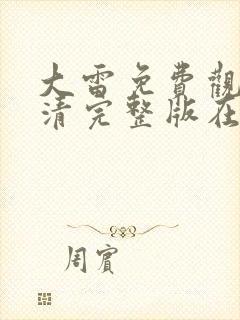 大雷免費觀
清完整版在
周賓